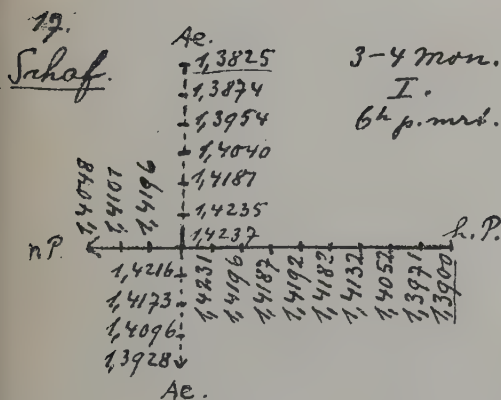 17.
Schaf.
Ae.
3-4 Mon.
I.
6h p. mrt.
1,3825
1,3874
1,3954
1,4040
1,4187
1,4235
1,4237
1,4048
1,4101
1,4196
nP.
h.P.
1,4231
1,4196
1,4187
1,4192
1,4182
1,4132
1,4052
1,3971
1,3900
1,4216
1,4173
1,4096
1,3928
Ae.